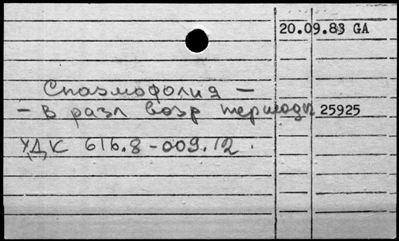 20.09.83 GA
Спазмофолия —
– в разл возр периоды 25925
УДК 616.8-009.12.